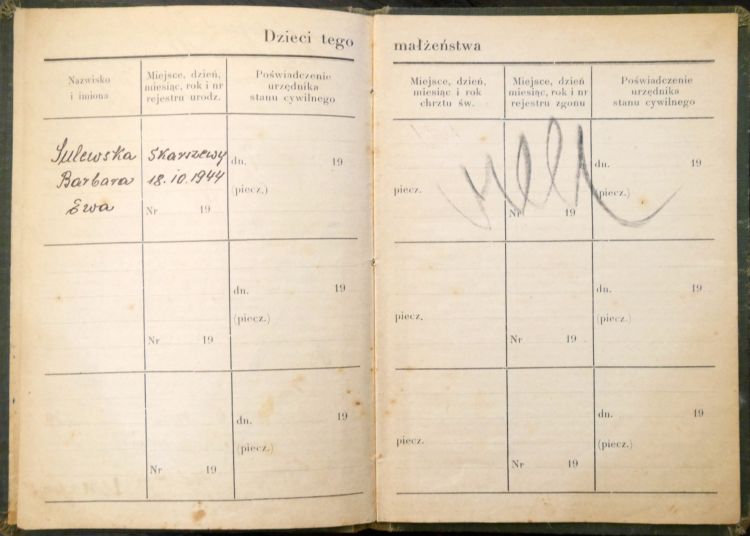 Dzieci tego małżeństwa
Nazwisko
i imiona
Miejsce, dzień,
miesiąc, rok i nr
rejestru urodz.
Poświadczenie
urzędnika
stanu cywilnego
Sulewska
Barbara
Ewa
Skarszewy
18.10.1944
Nr 19
dn. 19
(piecz.)
Nr 19
dn. 19
(piecz.)
Nr 19
dn. 19
(piecz.)
Miejsce, dzień,
miesiąc i rok
chrztu św.
Miejsce, dzień
miesiąc, rok i nr
rejestru zgonu
Poświadczenie
urzędnika
stanu cywilnego
piecz.
Nr 19
dn. 19
(piecz.)
piecz.
Nr 19
dn. 19
(piecz.)
piecz.
Nr 19
dn. 19
(piecz.)